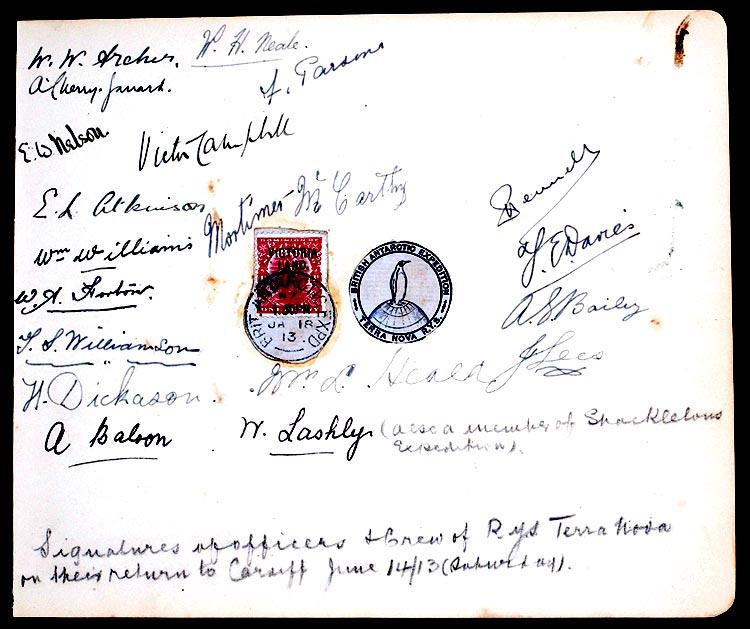 W. W. Archer.
W. H. Neale.
A. Cherry-Garrard.
F. Parsons
E. W. Nelson.
Victor Campbell
E. L. Atkinson
Mortimer McCarthy
Pennell
Wm Williams
F. E. Davies
W. A. Horton.
VICTORIA
LAND
BRIT. ANTARCTIC EXPD
JA 18
13
BRITISH ANTARCTIC EXPEDITION
TERRA NOVA R.Y.S.
A. S. Bailey
T. S. Williamson
J Lees
H. Dickason.
Wm L. Heald
A Balson
W. Lashly (also a member of Shackletons
Expedition).
Signatures of officers & Crew of RYS Terra Nova
on their return to Cardiff June 14/13 (Saturday).